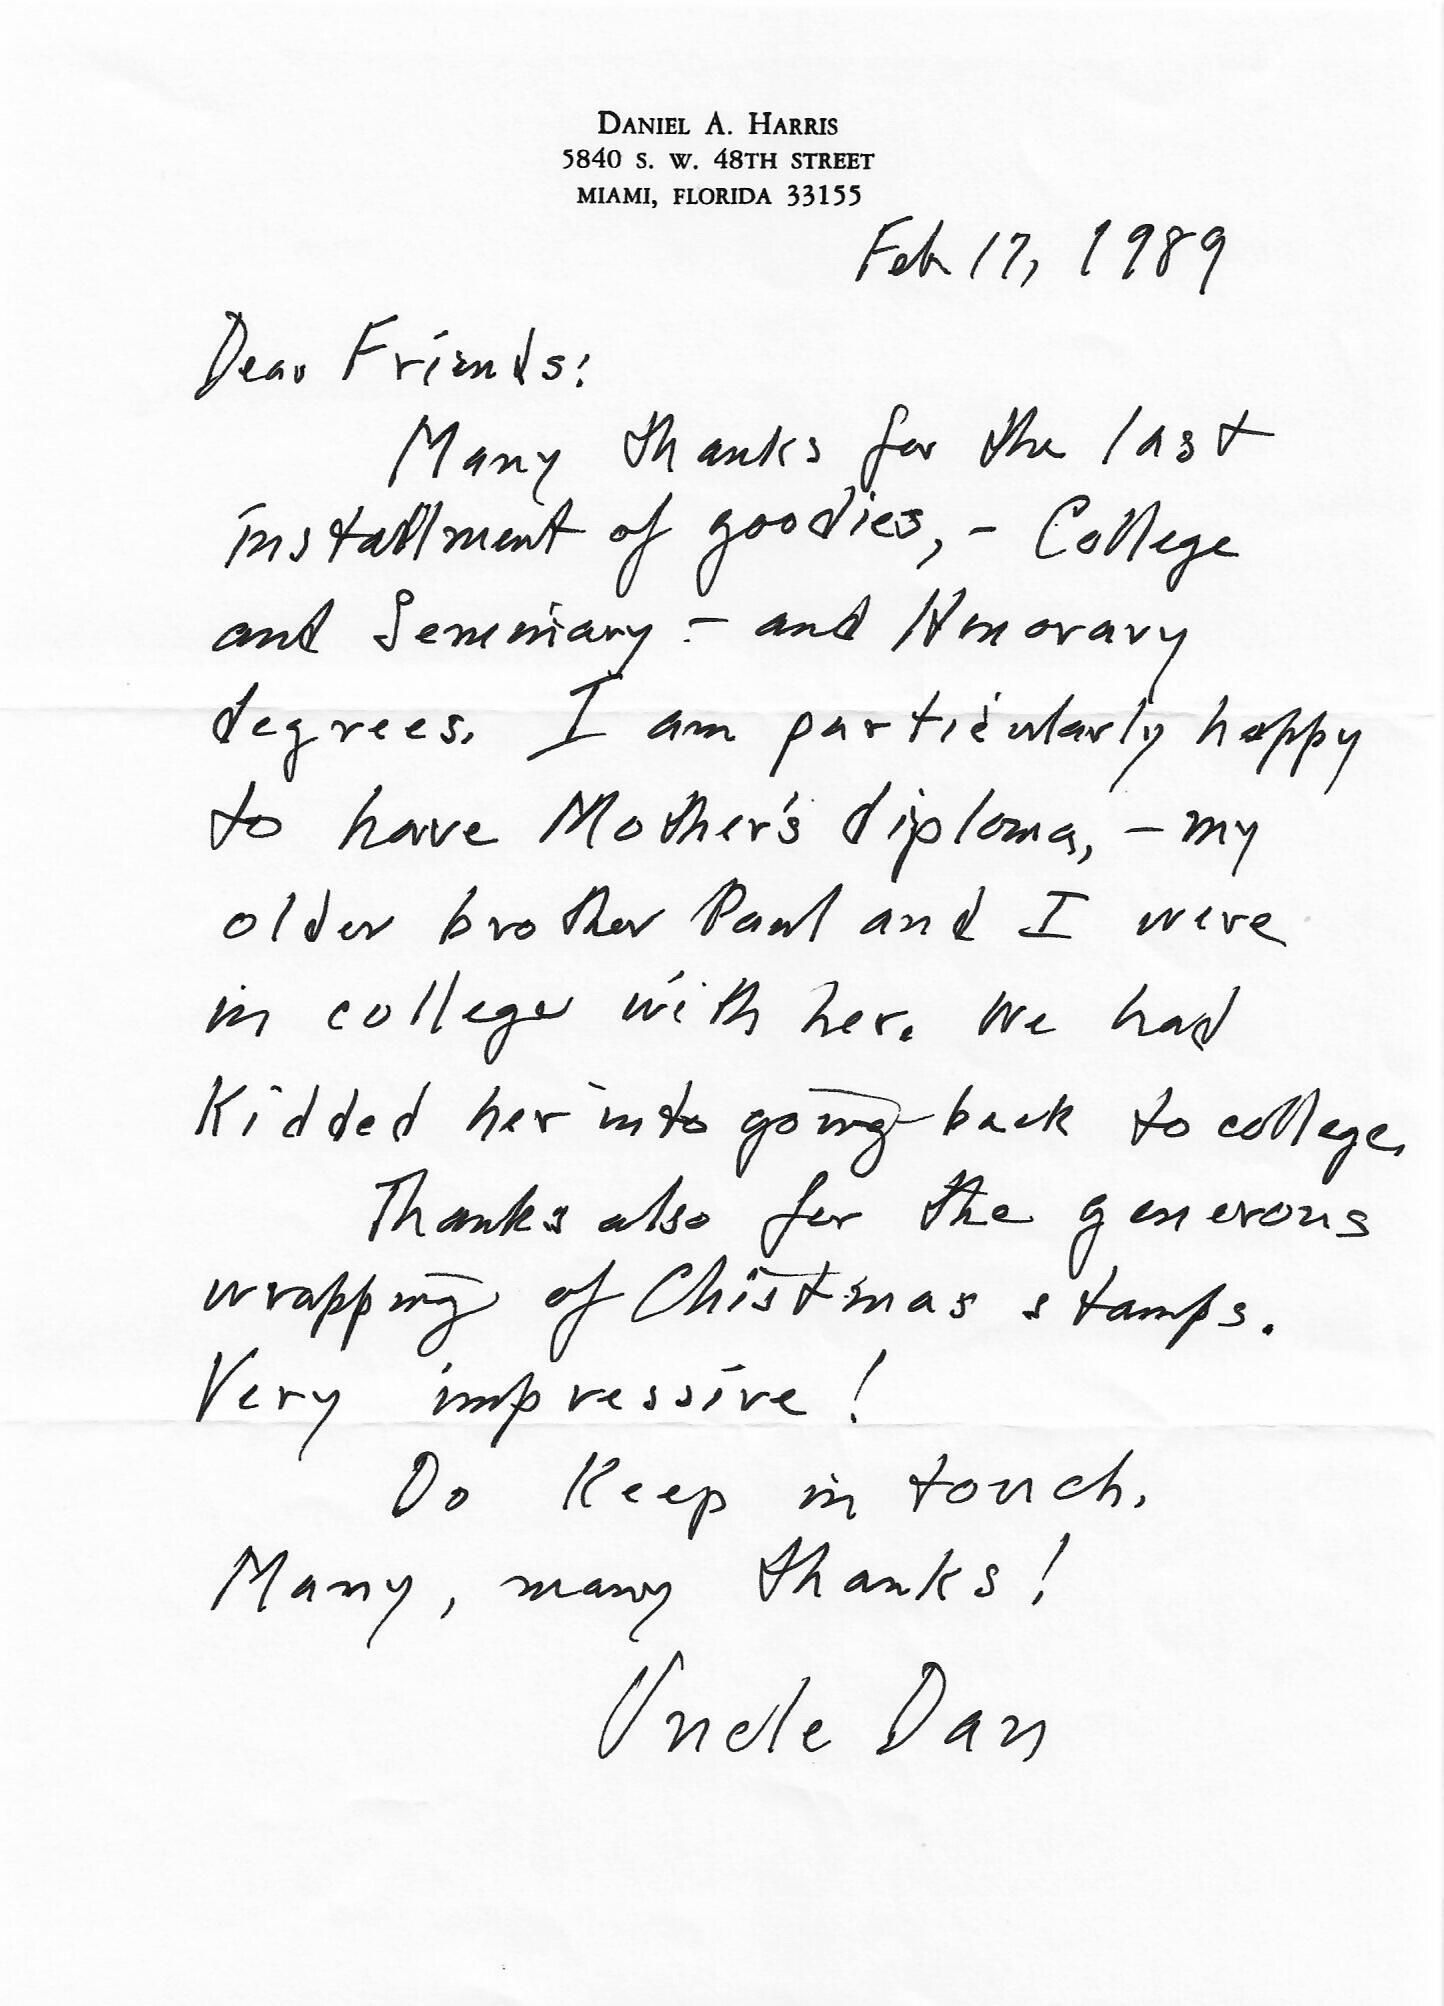 DANIEL A. HARRIS
5840 S. W. 48TH STREET
MIAMI, FLORIDA 33155
Feb 17, 1989
Dear Friends:
Many thanks for the last
installment of goodies, - College
and Seminary - and Honorary
degrees. I am particularly happy
to have Mother's diploma, - my
older brother Paul and I were
in college with her. We had
Kidded her into going back to college.
Thanks also for the generous
wrapping of Chistmas stamps.
Very impressive!
Do Keep in touch.
Many, many thanks!
Uncle Dan